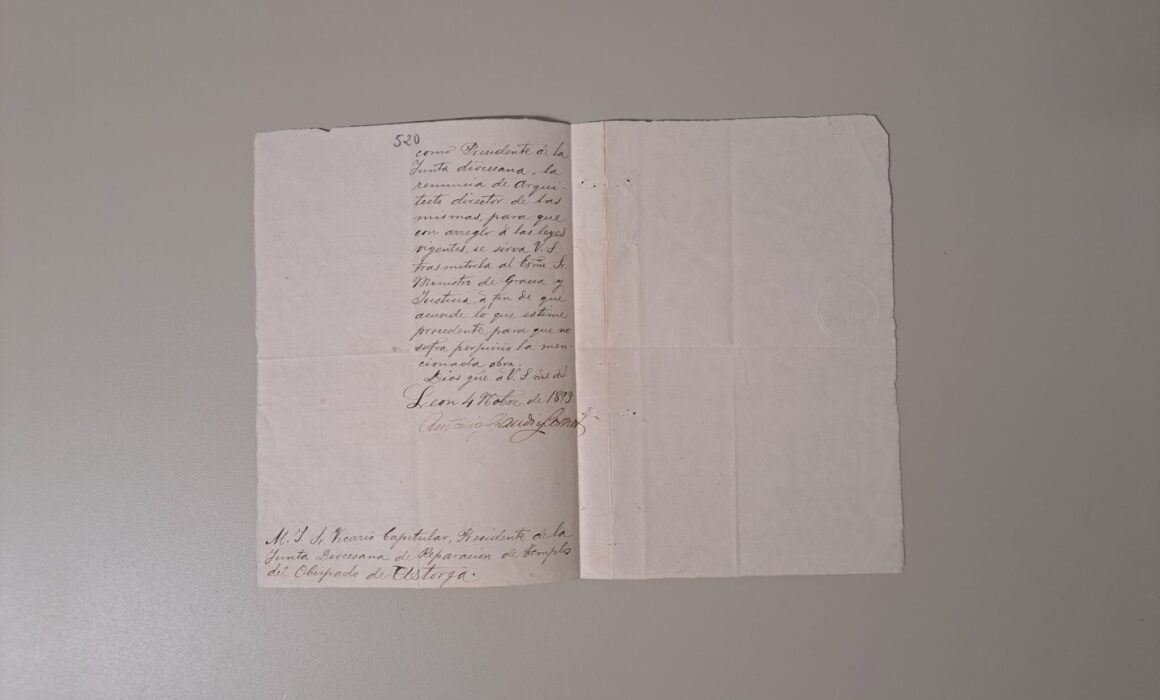 520
como Presidente de la
Junta diocesana, la
renuncia de Arqui-
tecto director de las
mismas, para que
con arreglo á las leyes
vigentes, se sirva V. S.
trasmitirla al Exmo. Sr.
Ministro de Gracia y
Justicia, á fin de que
acuerde lo que estime
procedente, para que no
sufra perjuicio la men-
cionada obra.
Dios gue á V. S. ms as
Leon 4 Nobre. de 1893
Antonio Gaudí y Cornet
M. I. Sr. Vicario Capitular, Presidente de la
Junta Diocesana de Reparacion de templos
del Obispado de Astorga.